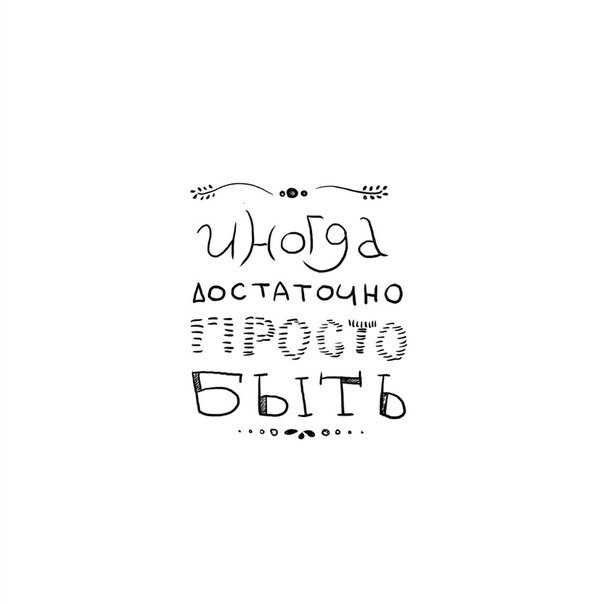 иногда
ДОСТАТОЧНО
ПРОСТО
БЫТЬ